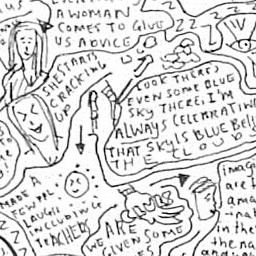 A WOMAN
COMES TO GIVE
US ADVICE
SHE STARTS
CRACKING
UP
LOOK THERE'S
EVEN SOME BLUE
SKY THERE, I'M
ALWAYS CELEBRATING
THAT SKY IS BLUE BEH
THE CLOUD
MADE A
FEW PPL
LAUGH
INCLUDING
TEACHERS
WE ARE
GIVEN SOME
imag
are f
ama
-inat
in the
the na